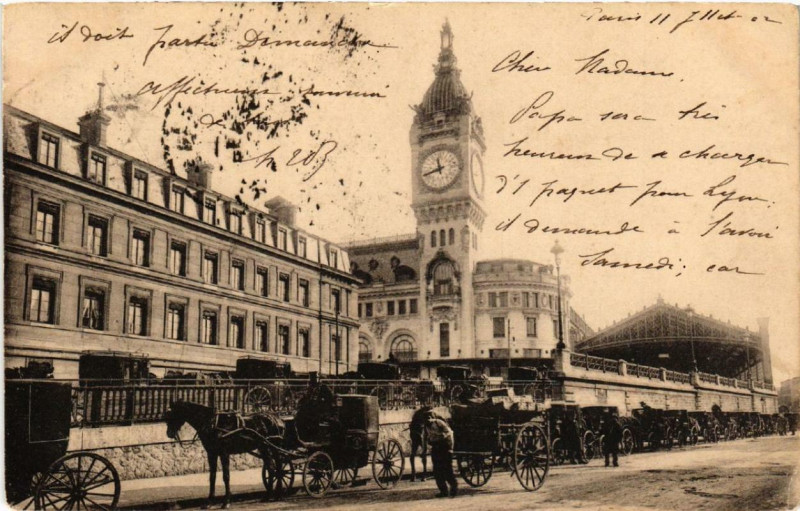 Paris 11 Juillet 02
Chère Madame.
Papa sera très
heureux de se charger
d'1 paquet pour Lyon.
il demande à l'avoir
Samedi; car
il doit partir Dimanche.
Affectueux souvenir
de